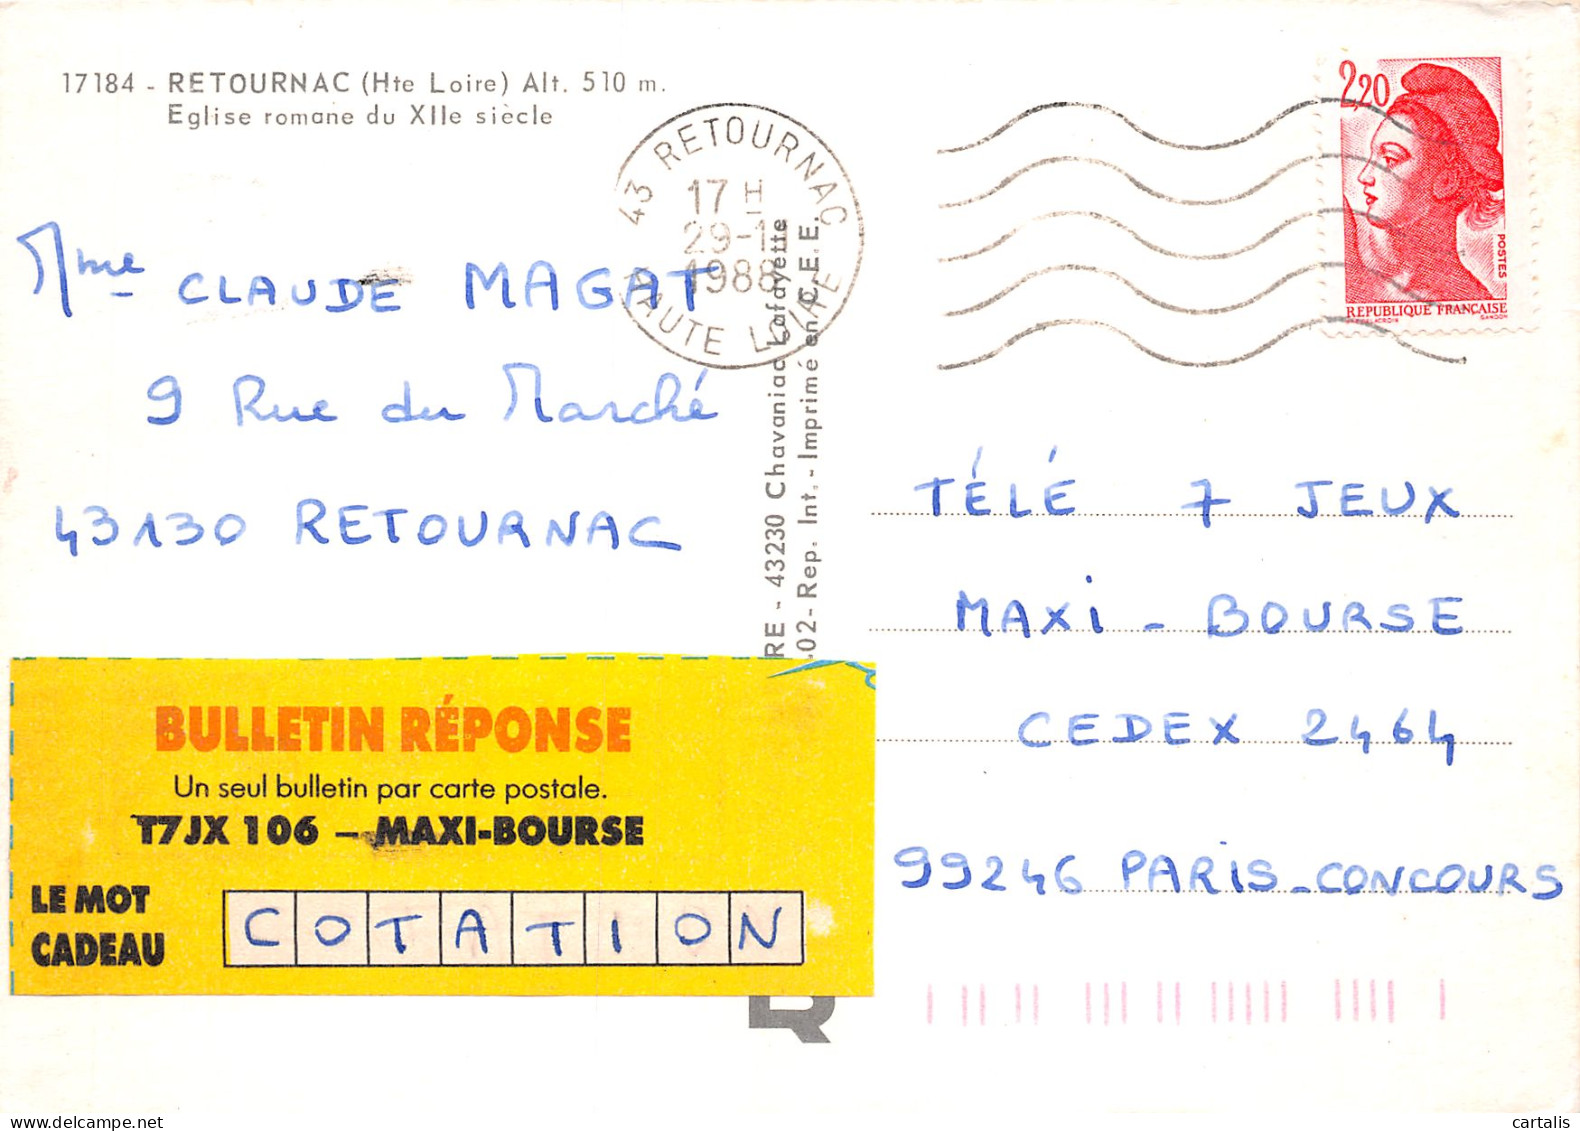 17184 - RETOURNAC (Hte Loire) Alt. 510 m.
Eglise romane du XIIe siècle
43 RETOURNAC
17 H
29-11
1988
HAUTE LOIRE
2,20
POSTES
REPUBLIQUE FRANÇAISE
GANDON
Mme CLAUDE MAGAT
9 Rue du Marché
43130 RETOURNAC
RE - 43230 Chavaniac Lafayette
02 - Rep. Int. - Imprimé en C.E.E.
TÉLÉ 7 JEUX
MAXI - BOURSE
CEDEX 2464
99246 PARIS-CONCOURS
BULLETIN RÉPONSE
Un seul bulletin par carte postale.
T7JX 106 – MAXI-BOURSE
LE MOT
CADEAU
COTATION
cartalis